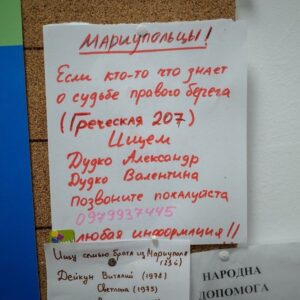 Мариупольцы!
Если кто-то что знает
о судьбе правого берега
(Греческая 207)
Ищем
Дудко Александр
Дудко Валентина
позвоните пожалуйста
0979937445
любая информация!!
Ищу семью брата из Мариуполя
Дейкун Виталий (1978)
Светлана (1975)
НАРОДНА
ДОПОМОГА